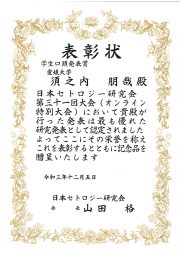 表彰状
学生口頭発表賞
愛媛大学
須之内 朋哉殿
日本セトロジー研究会
第三十一回大会(オンライン
特別大会)において貴殿が
行った発表は最も優れた
研究発表として認定されました
よってここにその栄誉を称え
これを表彰するとともに記念品を
贈呈いたします
令和三年十二月五日
日本セトロジー研究会
会長 山田 格